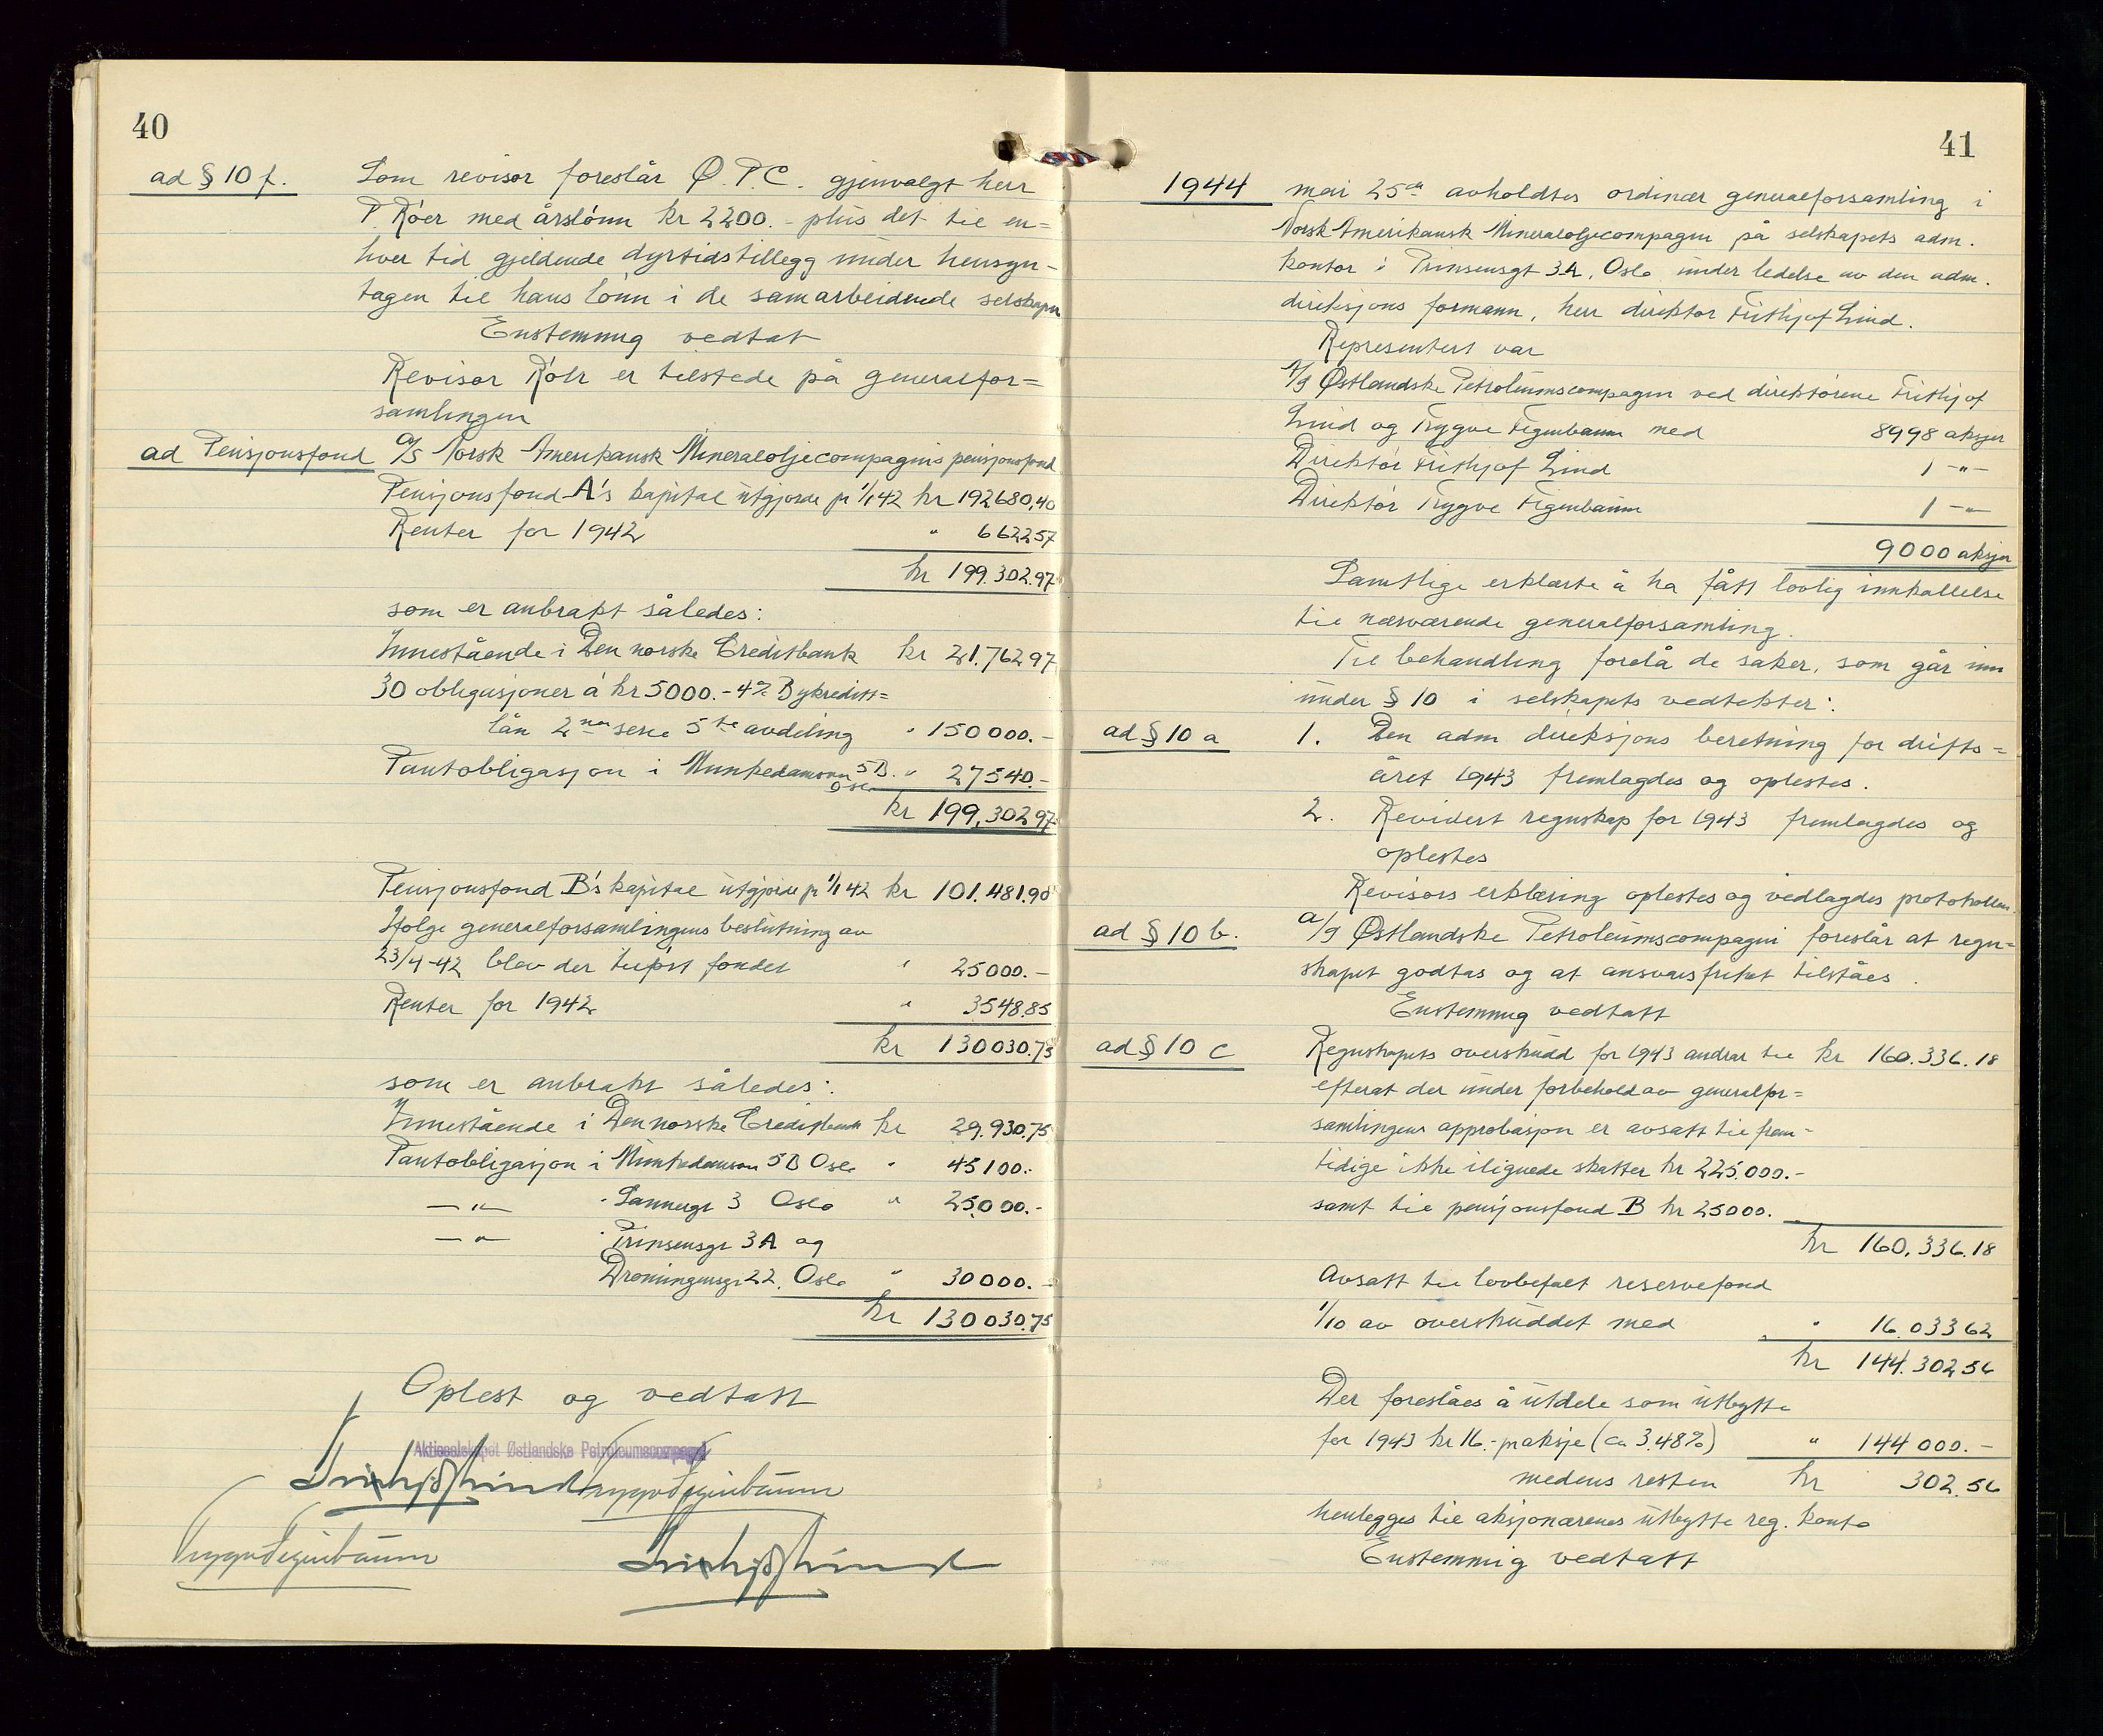 40
ad § 10 f. Som revisor foreslår Ø.P.C. gjenvalgt herr
P. Röer med årslönn kr 2200.- plus det til en=
hver tid gjeldende dyrtidstillegg under hensyn-
tagen til hans lönn i de samarbeidende selskaper
Enstemmig vedtat
Revisor Röer er tilstede på generalfor=
samlingen
ad Pensjonsfond a/s Norsk Amerikansk Mineraloljecompagnis pensjonsfond
Pensjonsfond A's kapital utgjorde pr 1/1 42 kr 192680,40
Renter for 1942 " 6622 57
kr 199.302.97
som er anbrakt således:
Innestående i Den norske Creditbank kr 21.762 97
30 obligasjoner á kr 5000.- 4% Bykreditt=
lån 2nen serie 5te avdeling " 150000.-
Pantobligasjon i Munkedamsvn 5B. " 27540.-
Oslo
kr 199,302 97
Pensjonsfond B's kapital utgjorde pr 1/1 42 kr 101.481.90
Ifölge generalforsamlingens beslutning av
23/4-42 blev der tilfört fondet " 25000.-
Renter for 1942 " 3548.85
kr 130030.75
som er anbrakt således:
Innestående i Den norske Creditbank kr 29.930.75
Pantobligasjon i Munkedamsvn 5B Oslo " 45100.-
-"- " Sannergt 3 Oslo " 25000.-
-"- " Prinsensgt 3A og
Dronningensgt 22, Oslo " 30000.-
kr 130030.75
Oplest og vedtatt
Aktieselskapet Østlandske Petroleumscompagni
Frithjof Lind Trygve Figenbaum
Trygve Figenbaum Frithjof Lind
41
1944 mai 25de avholdtes ordinær generalforsamling i
Norsk Amerikansk Mineraloljecompagni på selskapets adm.
kontor i Prinsensgt 3A, Oslo under ledelse av den adm.
direksjons formann, herr direktör Frithjof Lind.
Representert var
A/S Østlandske Petroleumscompagni ved direktörene Frithjof
Lind og Trygve Figenbaum med 8998 aksjer
Direktör Frithjof Lind 1 -"-
Direktör Trygve Figenbaum 1 -"-
9000 aksjer
Samtlige erklærte å ha fått lovlig innkallelse
til nærværende generalforsamling.
Til behandling forelå de saker, som går inn
under § 10 i selskapets vedtekter:
ad § 10 a 1. Den adm direksjons beretning for drifts=
året 1943 fremlagdes og oplestes.
2. Revidert regnskap for 1943 fremlagdes og
oplestes
Revisors erklæring oplestes og vedlagdes protokollen.
ad § 10 b. a/s Østlandske Petroleumscompagni foreslår at regn=
skapet godtas og at ansvarsfrihet tilståes.
Enstemmig vedtatt
ad § 10 c Regnskapets overskudd for 1943 andrar til kr 160.336.18
efterat der under forbehold av generalfor=
samlingens approbasjon er avsatt til frem-
tidige ikke ilignede skatter kr 225.000.-
samt til pensjonsfond B kr 25000.
kr 160.336.18
Avsatt til lovbefalt reservefond
1/10 av overskuddet med " 16.033 62
kr 144.302 56
Der foreslåes å utdele som utbytte
for 1943 kr 16.- pr aksje (ca 3.48%) " 144 000.-
medens resten kr 302.56
henlegges til aksjonærenes utbytte reg. konto
Enstemmig vedtatt